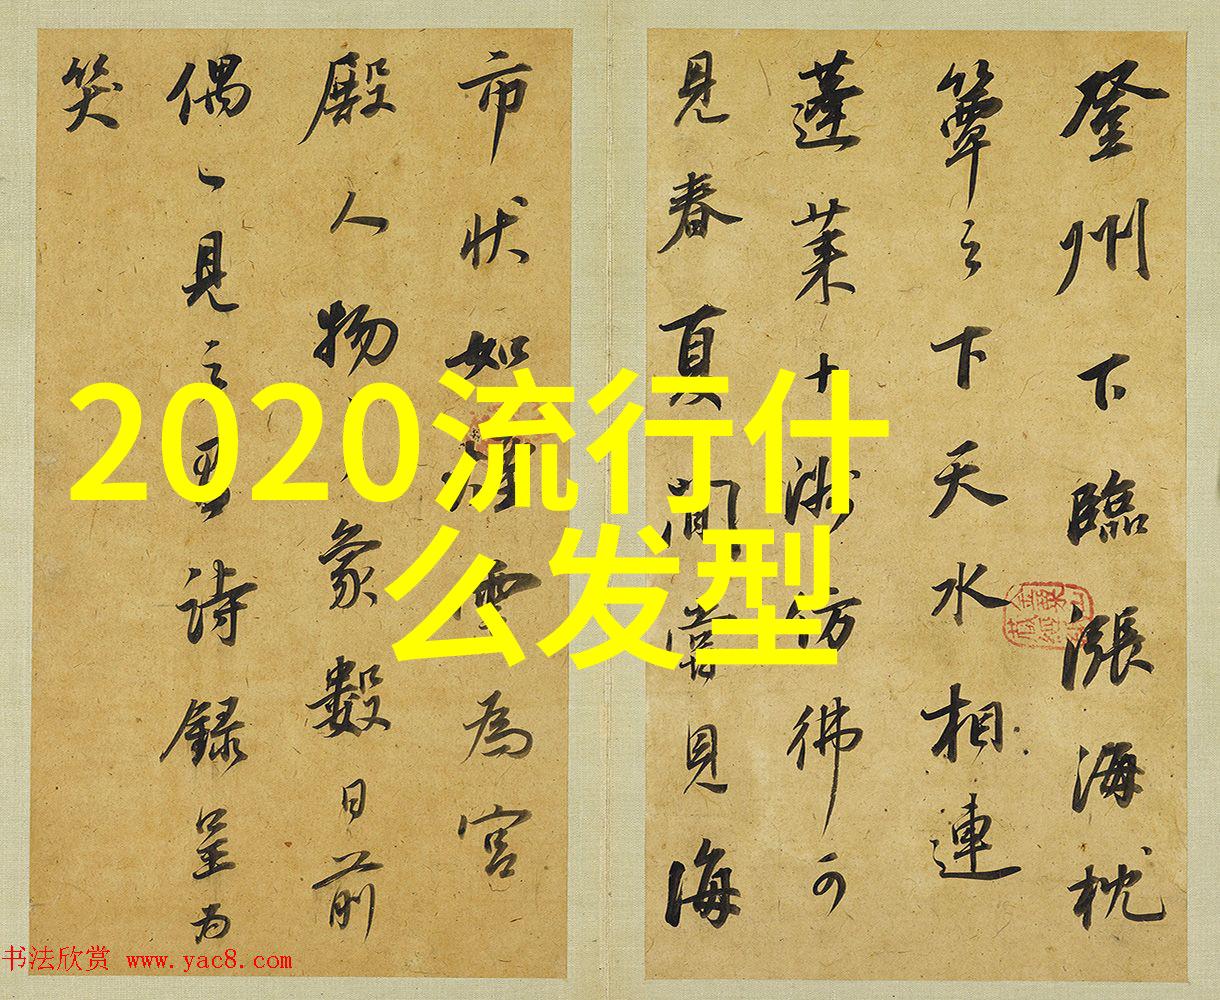 登州下臨漲海枕
簟之下天水相連
蓬萊十洲仿彿可
見春夏間嘗見海
市狀如煙雲為宮
殿人物之象數日前
偶一見之有詩錄呈為
笑
2020流行什
么发型
书法欣赏 www.yac8.com